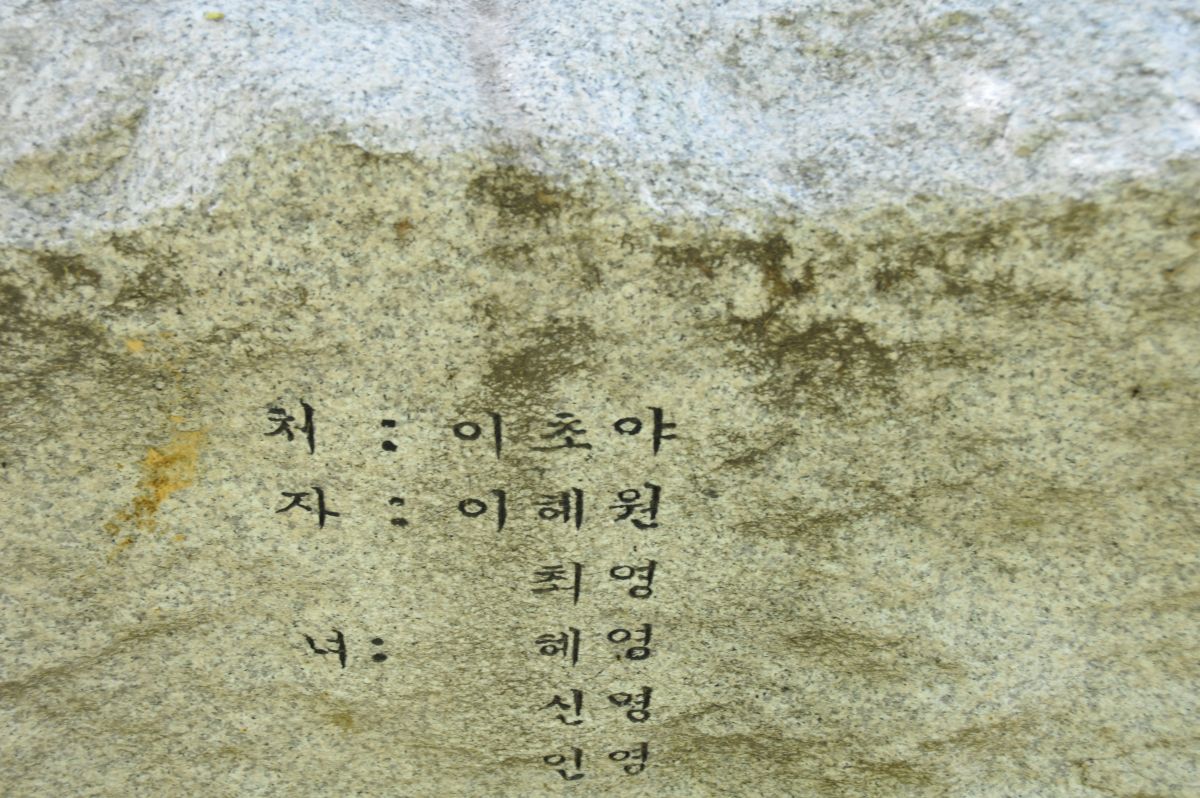 처 : 이초야
자 : 이혜원
최영
녀 : 혜영
신명
인영